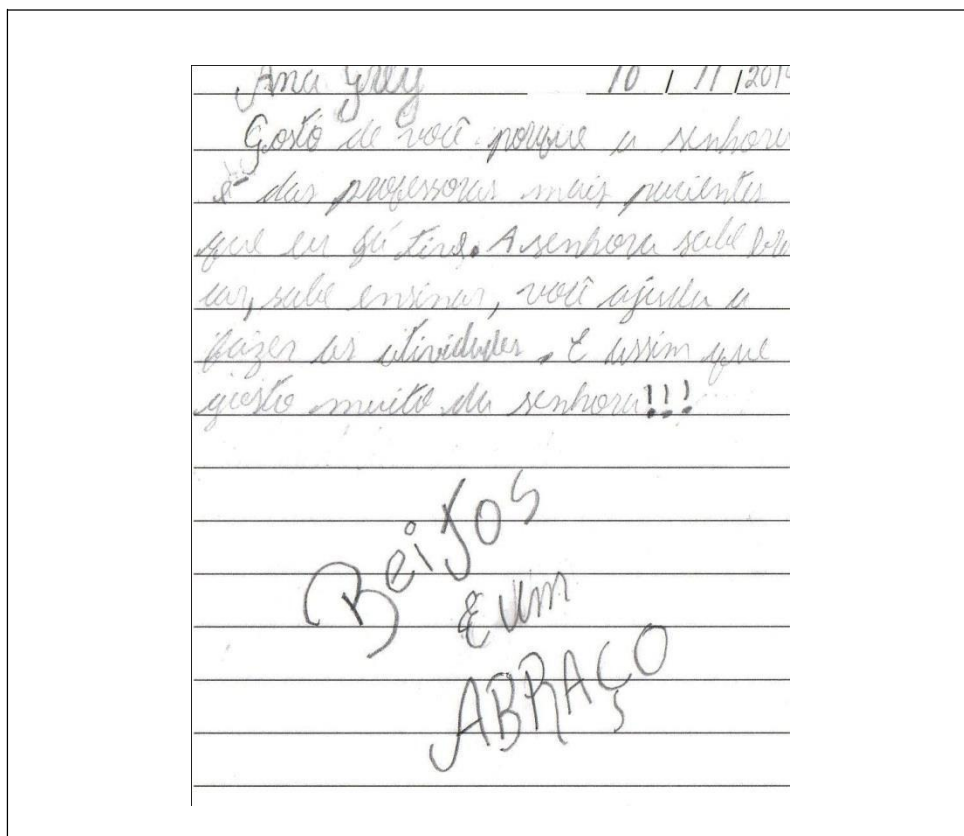 Ana Grey 10 / 11 / 2014
Gosto de você porque a senhora
é das professoras mais pacientes
que eu já tive. A senhora sabe
car, sabe ensinar, você ajuda a
fazer as atividades. E assim que
gosto muito da senhora!!!
BeiJos
e um
ABRAÇO